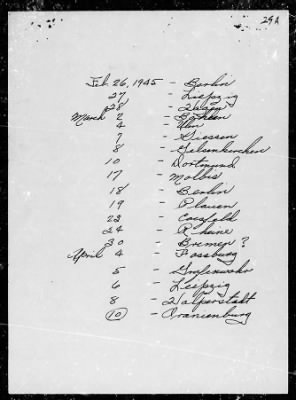 29A
Feb. 26, 1945 - Berlin
27 - Leipzig
28 - Hagen
March 2 - Bohlen
4 - Ulm
7 - Giessen
8 - Gelsenkirchen
10 - Dortmund
17 - Molbis
18 - Berlin
19 - Plauen
23 - Coesfeld
24 - Rheine
30 - Bremen ?
April 4 - Fassburg
5 -
6 - Leipzig
8 - Halperstadt
10 - Oranienburg